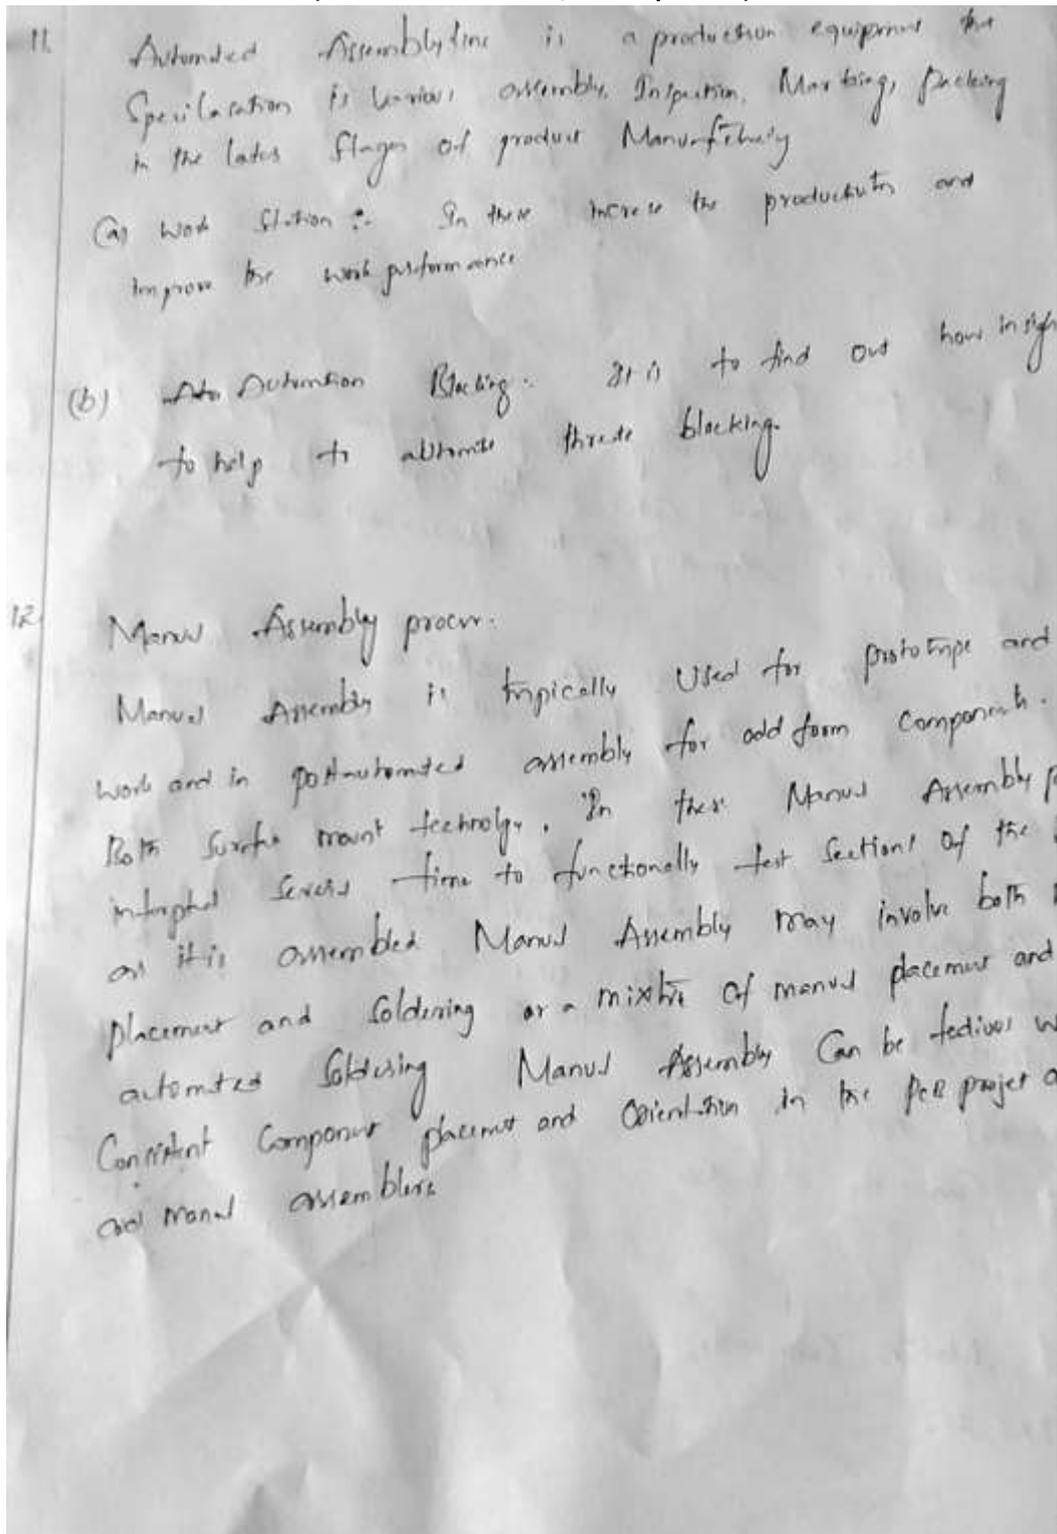 11.
Automated Assembly line is a production equipment that
Specilasation is various assembly, Inspection, Marking, packing
in the later Stages of product Manufcturing
(a) Work Station :- In these increse the productivity and
improve the work performance
(b) Automtion Blocking :- It is to find out how insigh
to help to automte threte blocking.
12.
Manul Assembly proces.
Manual Assembly is typically Used for prototype and
work and in postautomated assembly for odd form components.
Both Surfce mount technolgy. In thes Manul Assembly p
interpted severl time to functionally test Sections of the
as it is assembled Manul Assembly may involve both
placement and Soldering or a mixtre of manul placement and
automted Soldering Manul Assembly Can be tedious w
Consistent Component placemet and Orientation in the PCB projet a
and manul assemblers